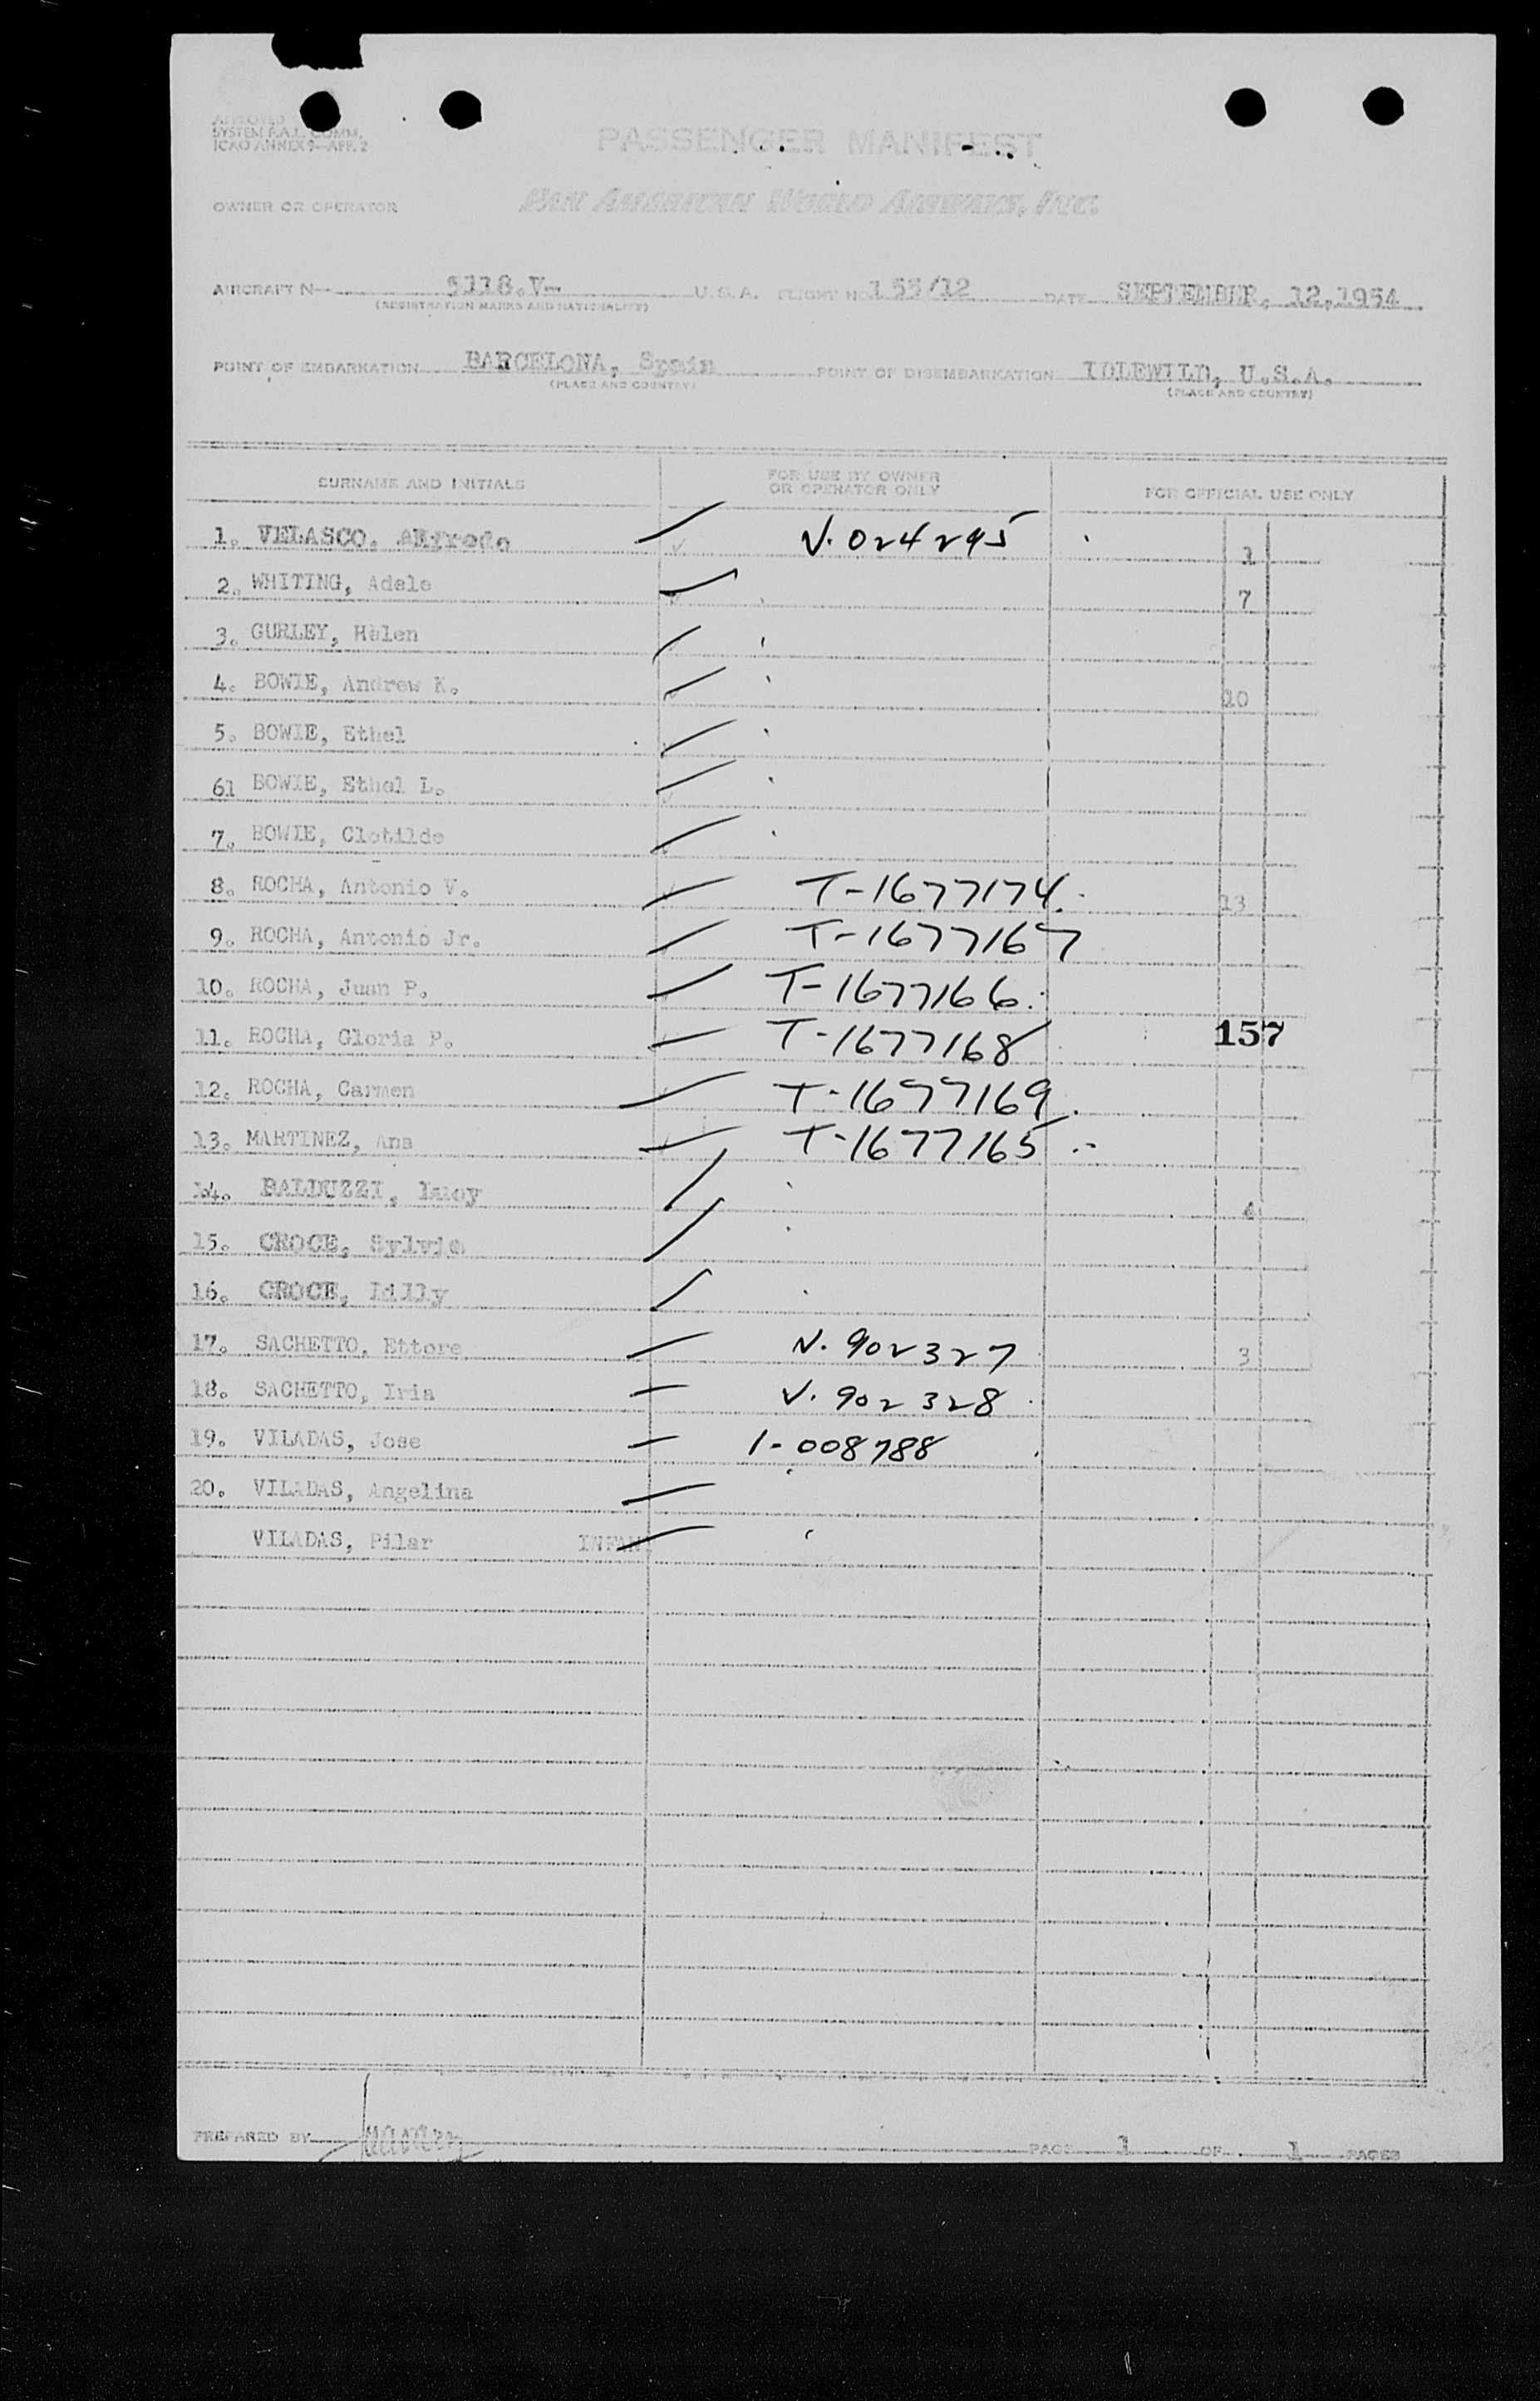 APPROVED
SYSTEM F.A.L. COMM.
ICAO ANNEX 9—APP. 2
PASSENGER MANIFEST
OWNER OR OPERATOR PAN AMERICAN WORLD AIRWAYS, INC.
AIRCRAFT N— 5118.V— U.S.A. FLIGHT NO 155/12 DATE SEPTEMBER, 12,1954
(REGISTRATION MARKS AND NATIONALITY)
POINT OF EMBARKATION BARCELONA, Spain POINT OF DISEMBARKATION IDLEWILD, U.S.A.
(PLACE AND COUNTRY) (PLACE AND COUNTRY)
SURNAME AND INITIALS FOR USE BY OWNER OR OPERATOR ONLY FOR OFFICIAL USE ONLY
1. VELASCO. Alfredo V. 024295 1
2. WHITING, Adele 7
3. GURLEY, Helen
4. BOWIE, Andrew K. 10
5. BOWIE, Ethel
61 BOWIE, Ethel L.
7. BOWIE, Clotilde
8. ROCHA, Antonio V. T-1677174 13
9. ROCHA, Antonio Jr. T-1677167
10. ROCHA, Juan P. T-1677166
11. ROCHA, Gloria P. T-1677168 157
12. ROCHA, Carmen T-1677169
13. MARTINEZ, Ana T-1677165
14. BALDUZZI, 4
15. CROCE, Sylvie
16. CROCE, Lilly
17. SACHETTO, Ettore V. 902327 3
18. SACHETTO, Iria V. 902328
19. VILADAS, Jose 1-008788
20. VILADAS, Angelina
VILADAS, Pilar INFANT
PREPARED BY PAGE 1 OF 1 PAGES